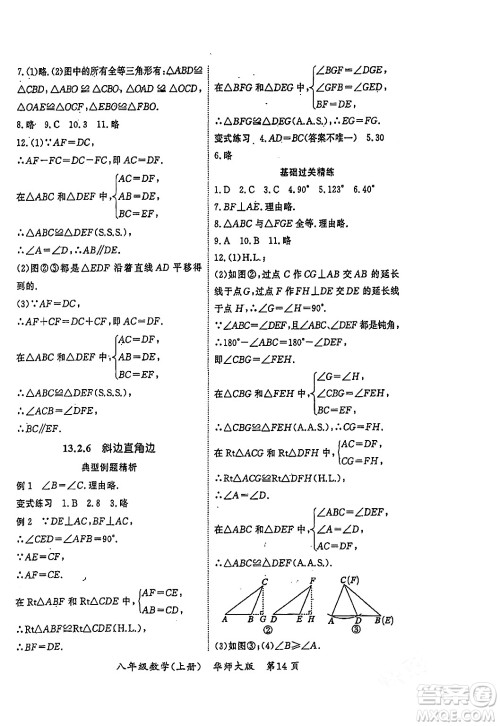 7.(1)略.(2)图中的所有全等三角形有:△ABD≌
△CBD,△AOD≌△COD,△AOB≌△COB,
△OAE≌△OCF,△OBE≌△FBO.
8.略 9.C 10.3 11.略
12.(1)∵AF=DC,
∴AF-CF=DC-CF,即AC=DF.
在△ABC和△DEF中{AC=DF,
AB=DE,
BC=EF,
∴△ABC≌△DEF(S.S.S.),
∴∠A=∠D,
∴AB∥DE.
(2)图②③都是△EDF沿着直线AD平移得
到的.
(3)∵AF=DC,
∴AF+CF=DC+CF,即AC=DF.
在△ABC和△DEF中{AC=DF,
AB=DE,
BC=EF,
∴△ABC≌△DEF(S.S.S.),
∴∠ACB=∠DFE,
∴BC∥EF.
13.2.6 斜边直角边
典型例题精析
例1 ∠B=∠C.理由略.
变式练习 1.D 2.8 3.略
例2 ∵DE⊥AC,BF⊥AC,
∴∠CED=∠AFB=90°.
∵AE=CF,
∴AF=CE.
在Rt△ABF和Rt△CDE中{AB=CD,
AF=CE,
∴Rt△ABF≌Rt△CDE(H.L.),
∴BF=DE.
在△BFG和△DEG中{∠BGF=∠DGE,
∠BFG=∠DEG,
BF=DE,
∴△BFG≌△DEG(A.A.S.),∴FG=EG.
变式练习 4.AD=BC(答案不唯一) 5.30
6.略
基础过关精练
1.D 2.C 3.C 4.90° 5.123° 6.20°
7.BF⊥AE.理由略.
8.∠ABC+∠DFE=90°,理由略.
9.A 10.B 11.略
12.(1)H.L.;
(2)如图②,过点C作CG⊥AB交AB的延长
线于点G,过点F作FH⊥DE交DE的延长
线于点H.
∵∠ABC=∠DEF,且∠ABC、∠DEF都是钝角,
∴180°-∠ABC=180°-∠DEF,
即∠CBG=∠FEH.
在△CBG和△FEH中{∠G=∠H,
∠CBG=∠FEH,
BC=EF,
∴△CBG≌△FEH(A.A.S.),
∴CG=FH.
在Rt△ACG和Rt△DFH中{AC=DF,
CG=FH,
∴Rt△ACG≌Rt△DFH(H.L.),
∴∠A=∠D.
在△ABC和△DEF中{∠ABC=∠DEF,
∠A=∠D,
AC=DF,
∴△ABC≌△DEF(A.A.S.);
C F C(F)
A B G D E H A D B(E)
② ③
(3)如图③;(4)∠B≥∠A.
八年级数学(上册) 华师大版 第14页